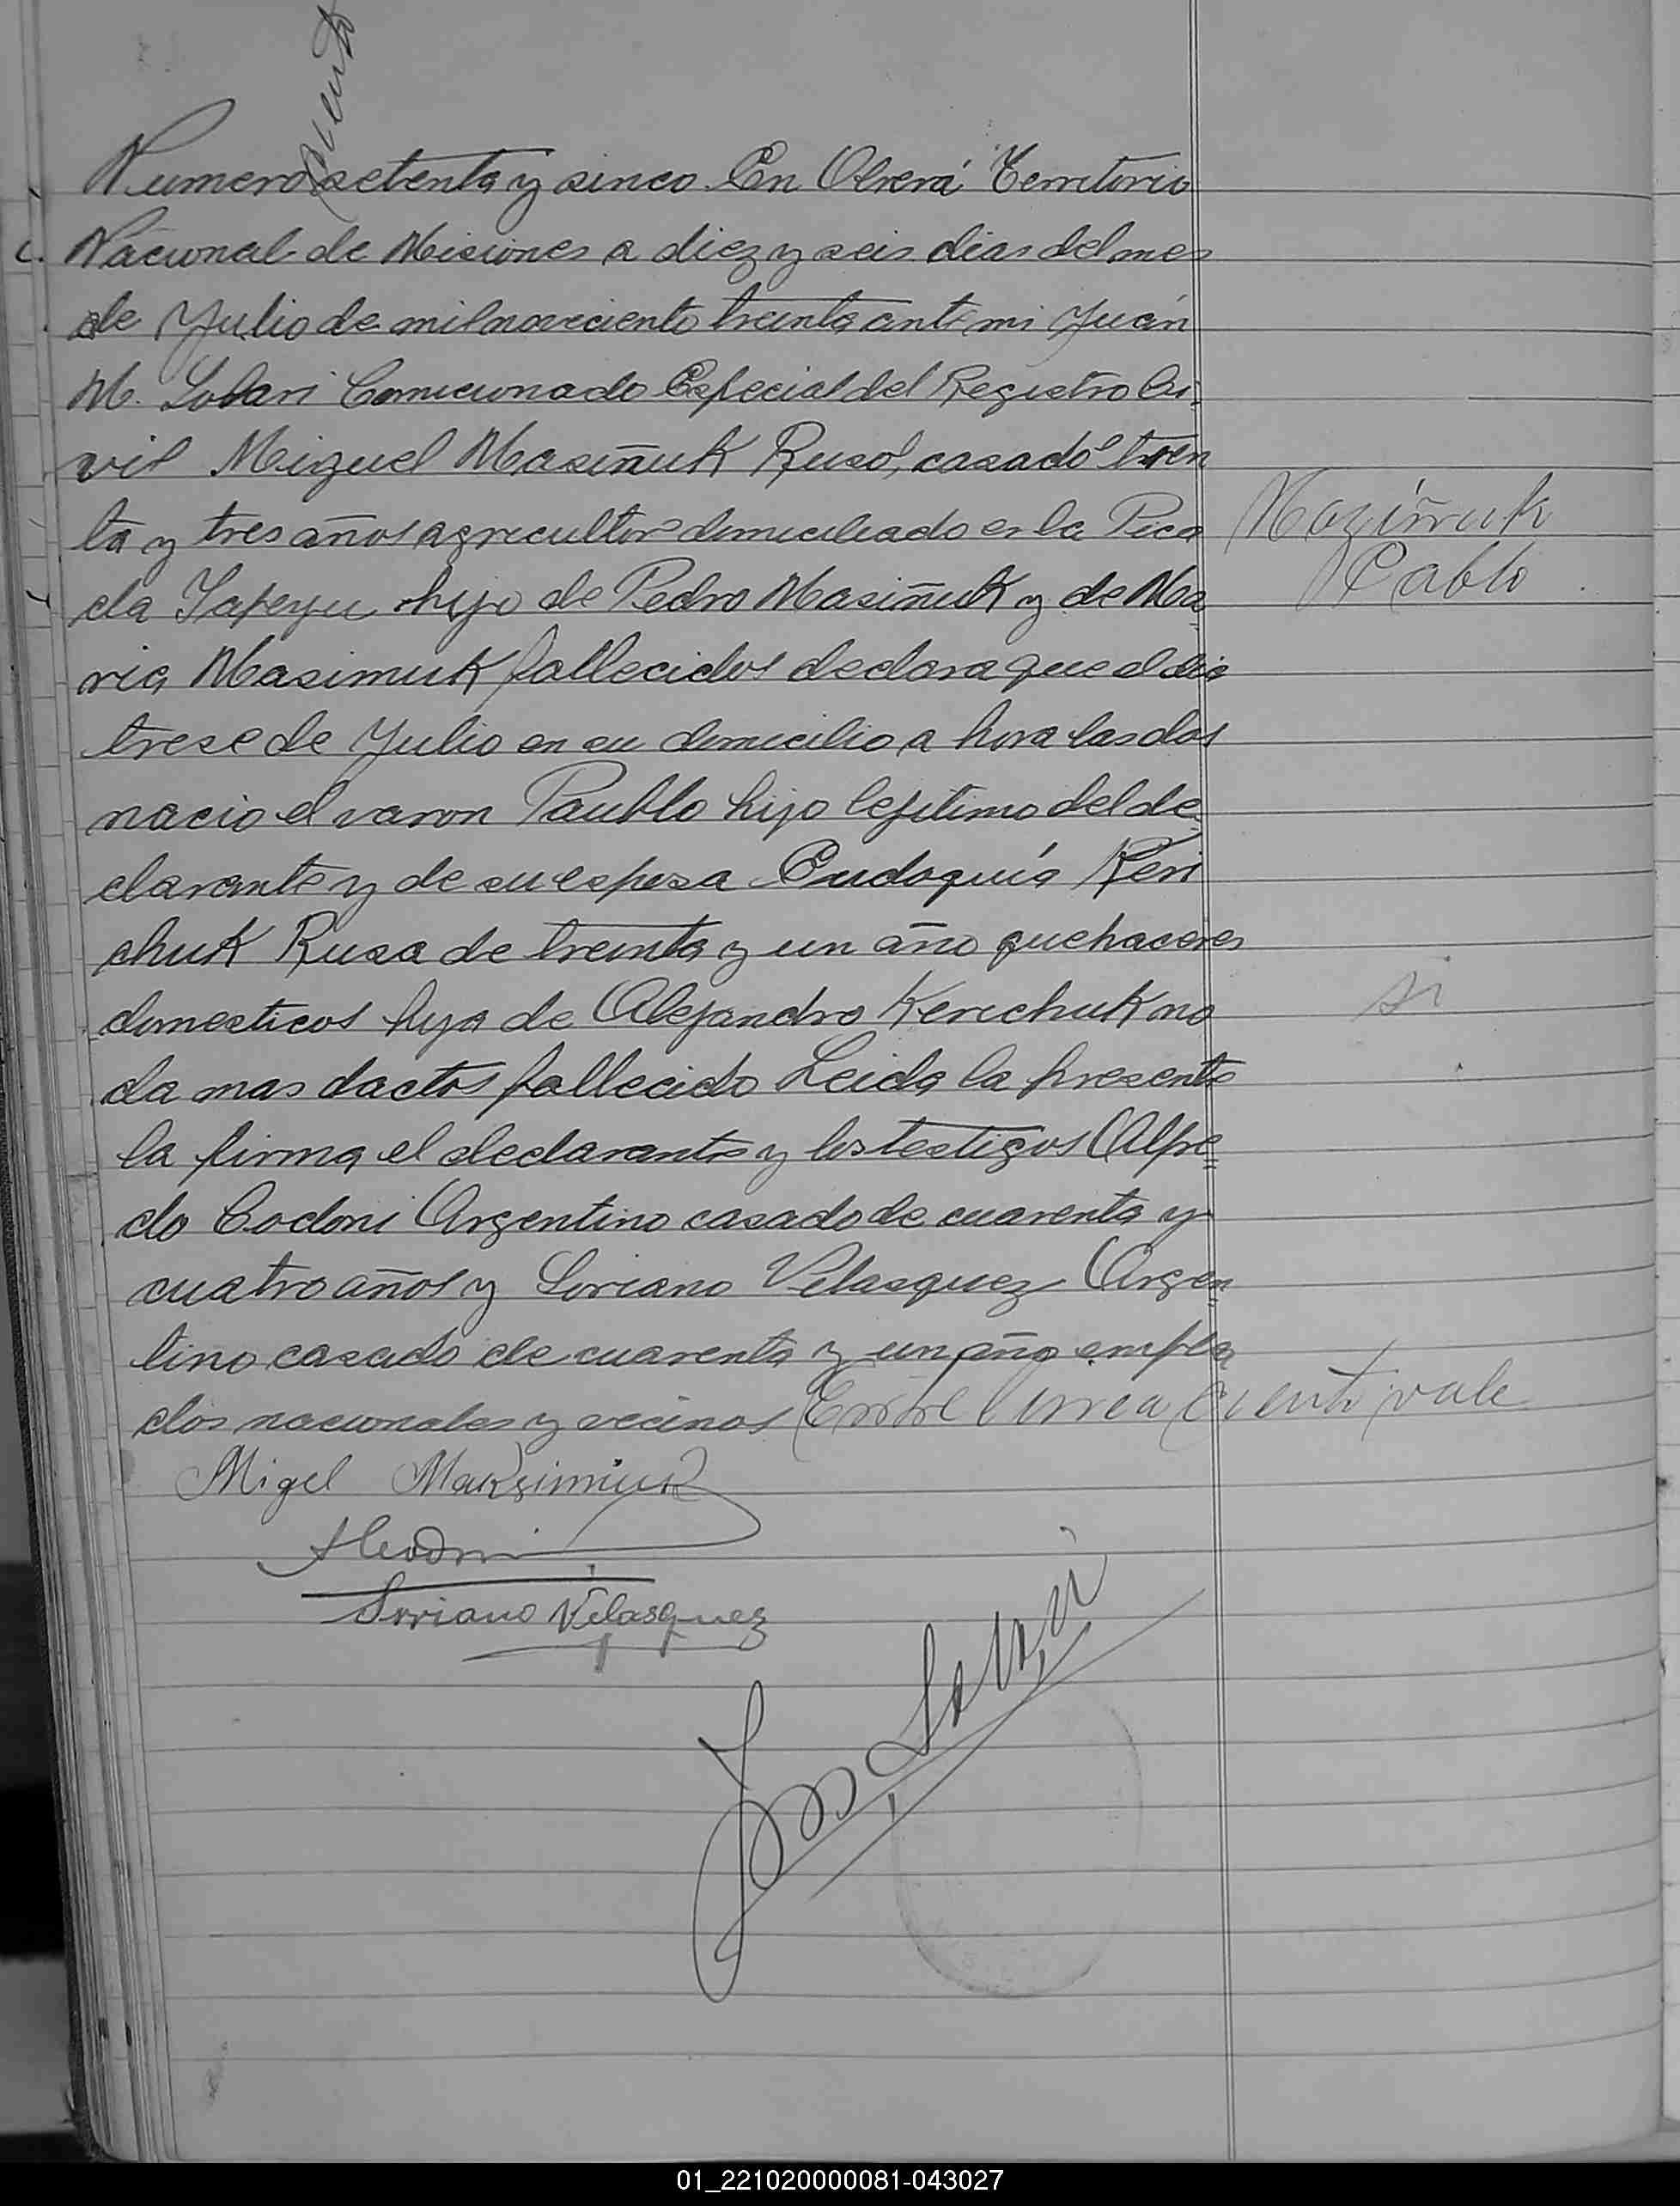 ciento
Numero setenta y sinco. En Oberá Territorio
Nacional de Misiones a diez y seis dias del mes
de Yulio de mil noveciento treinta ante mi Yuan
M. Lobari Comicionado Especial del Registro Ci-
vil Miguel Masiñuk Ruso, casado tren
ta y tres años agricultor domiciliado en la Pica
da Yapeyu hijo de Pedro Masiñuk y de Ma
ria Masimuk fallecidos declara que el dia
trese de Yulio en su domicilio a hora las dos
nacio el varon Paublo hijo lejitimo del de
clarante y de su espesa Eudoquia Keri
chuk Rusa de treinta y un año quehaceres
domesticos hija de Alejandro Kerichuk no
da mas dactos fallecido Leida la presente
la firma el declarante y los testigos Alfre
do Codoni Argentino casado de cuarenta y
cuatro años y Soriano Velasquez Argen
tino casado de cuarenta y un año emplea
dos nacionales y vecinos Entre linea ciento vale
Migel Maksimiuk
Soriano Velasquez
Maziñuk
Pablo
si
01_221020000081-043027